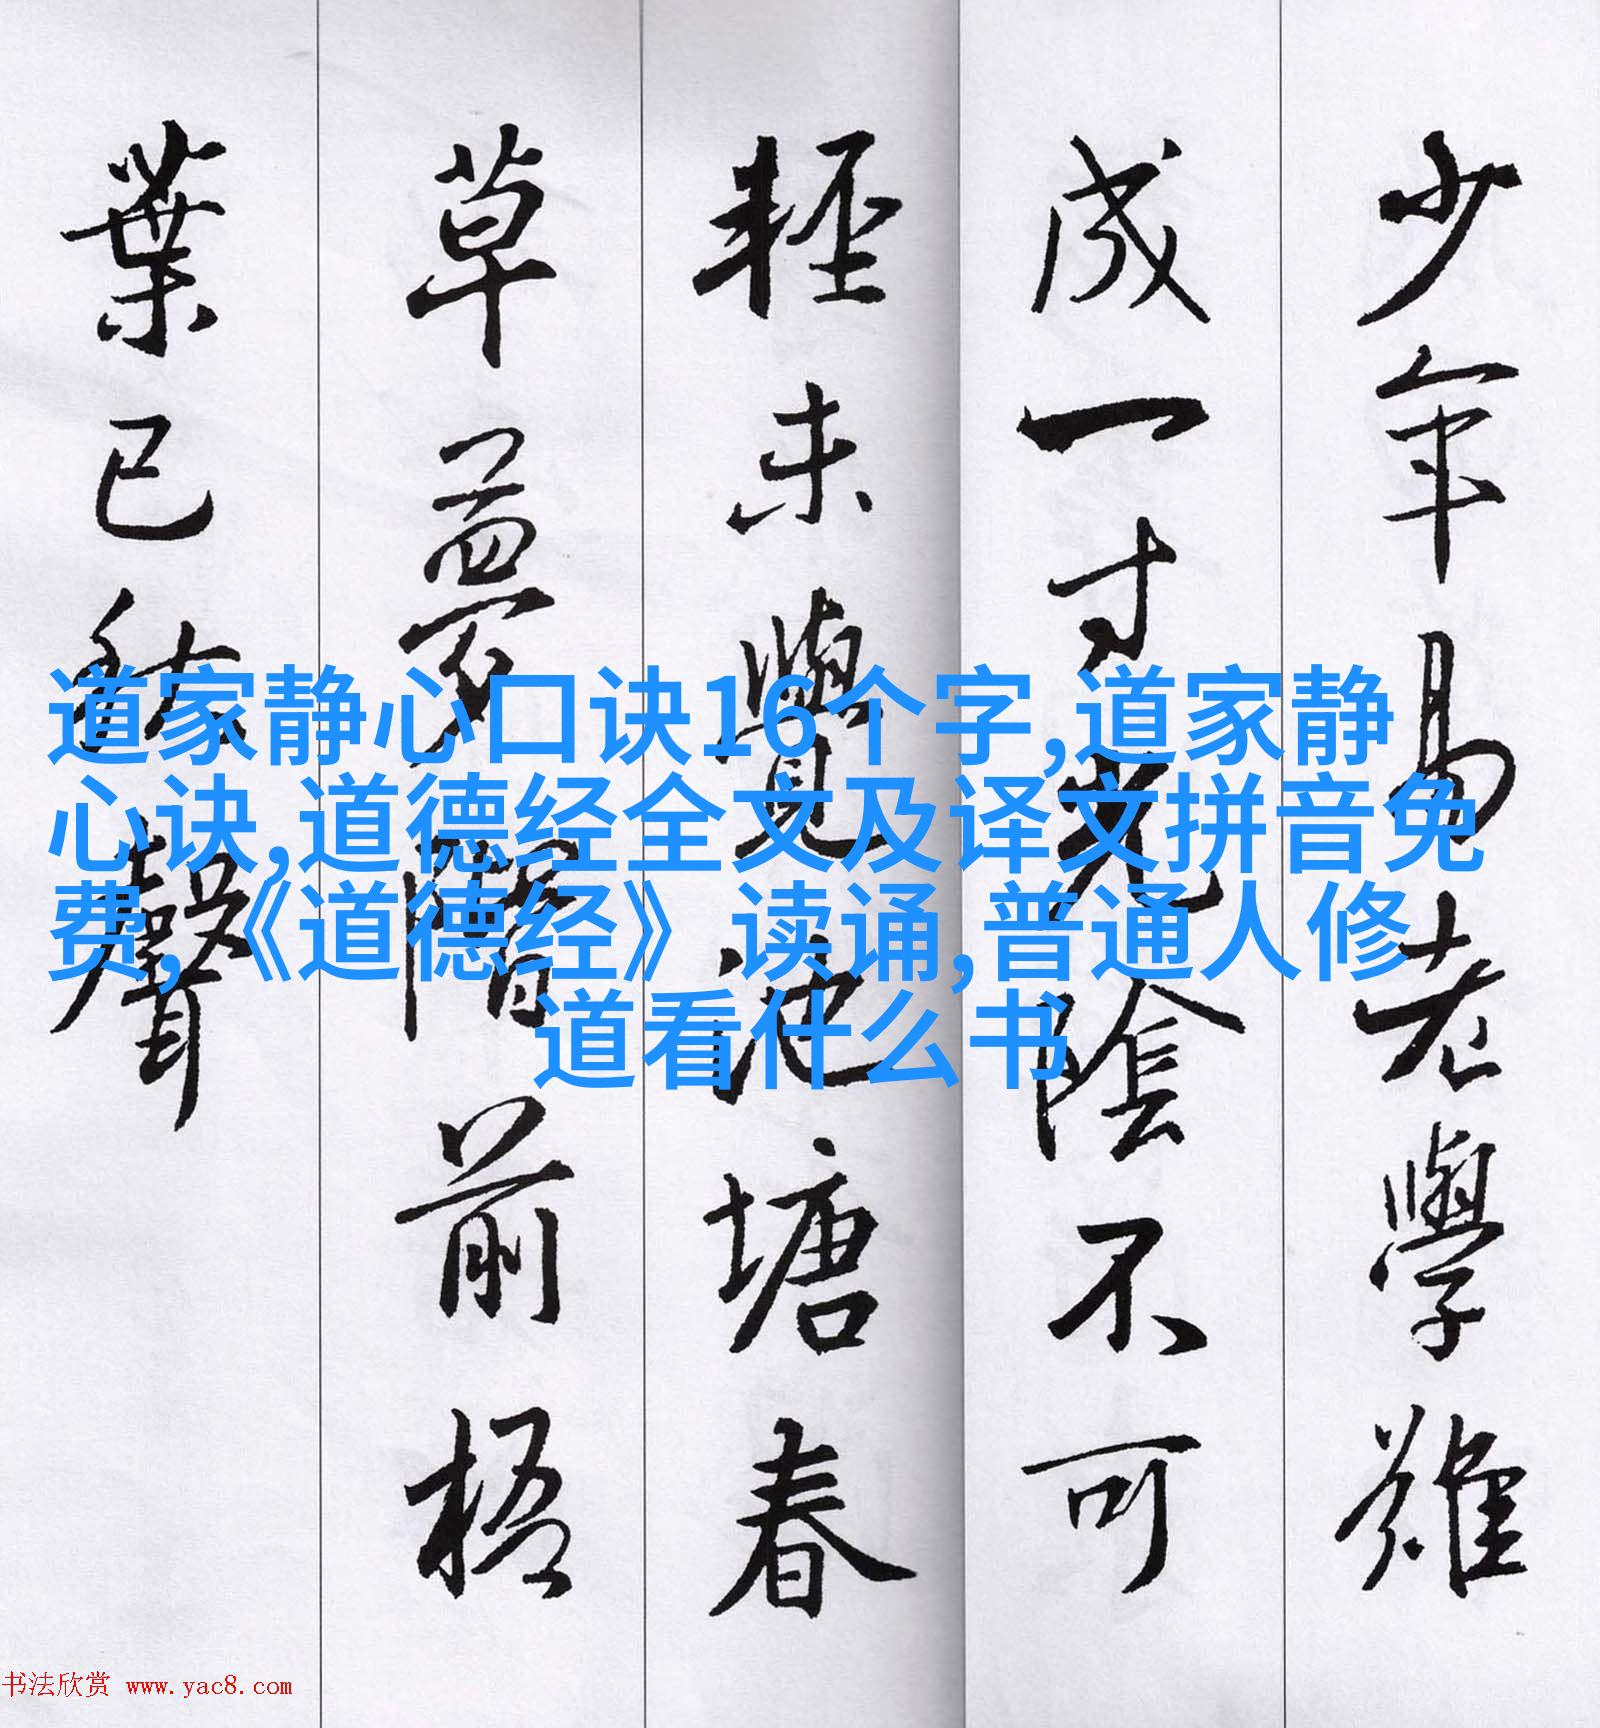 少年易老學難
成一寸光陰不可
輕未覺池塘春
草夢階前梧
葉已秋聲
道家静心口诀16个字,道家静
心诀,道德经全文及译文拼音免
费,《道德经》读诵,普通人修
道看什么书
书法欣赏 www.yac8.com